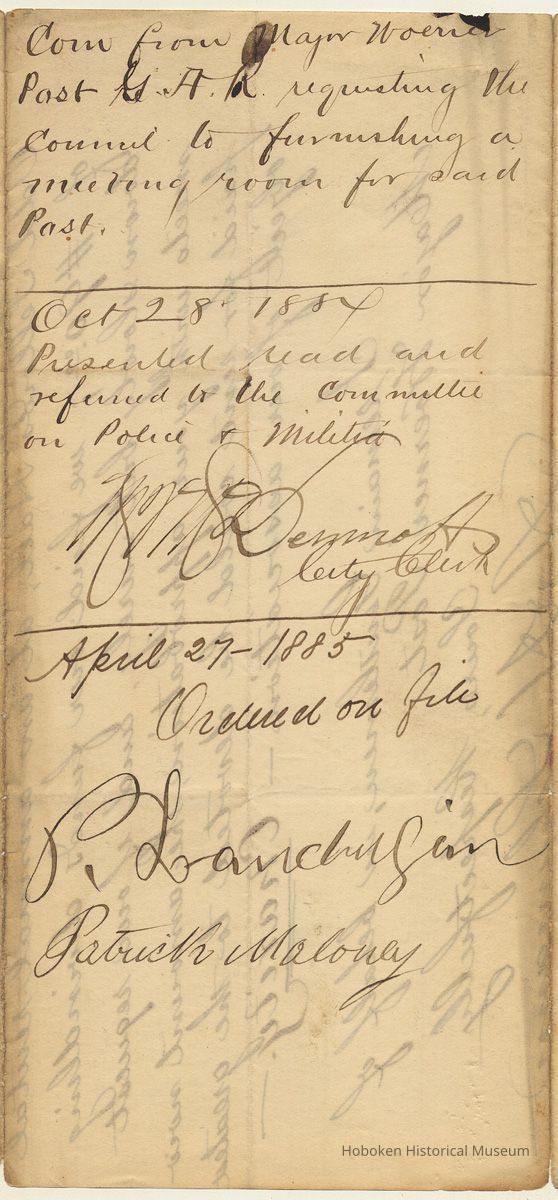 Com from Major Woerner
Post G. A. R. requesting the
Council to furnishing a
meeting room for said
Post.
Oct 28 1884
Presented read and
referred to the Committee
on Police & Militia
McDermott
City Clerk
April 27 - 1885
Ordered on file
P.
Patrick Maloney
Hoboken Historical Museum